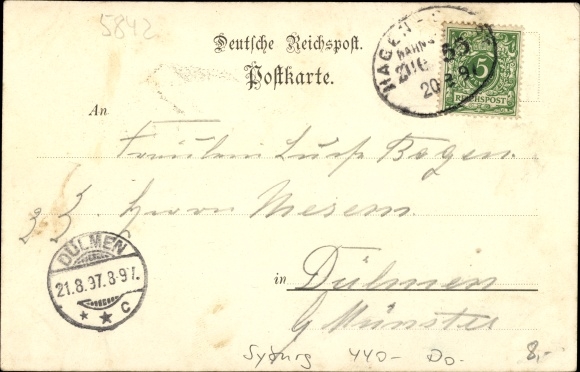 5842
Deutsche Reichspost.
Postkarte.
HAGEN
BAHNP
ZUG 55
20 8 97
5
REICHSPOST
An
Fräulein Bogen.
Herrn
DÜLMEN
21.8.97.8-9V.
* * C
in Dülmen
Münster
Syburg 440- Do- 8,-